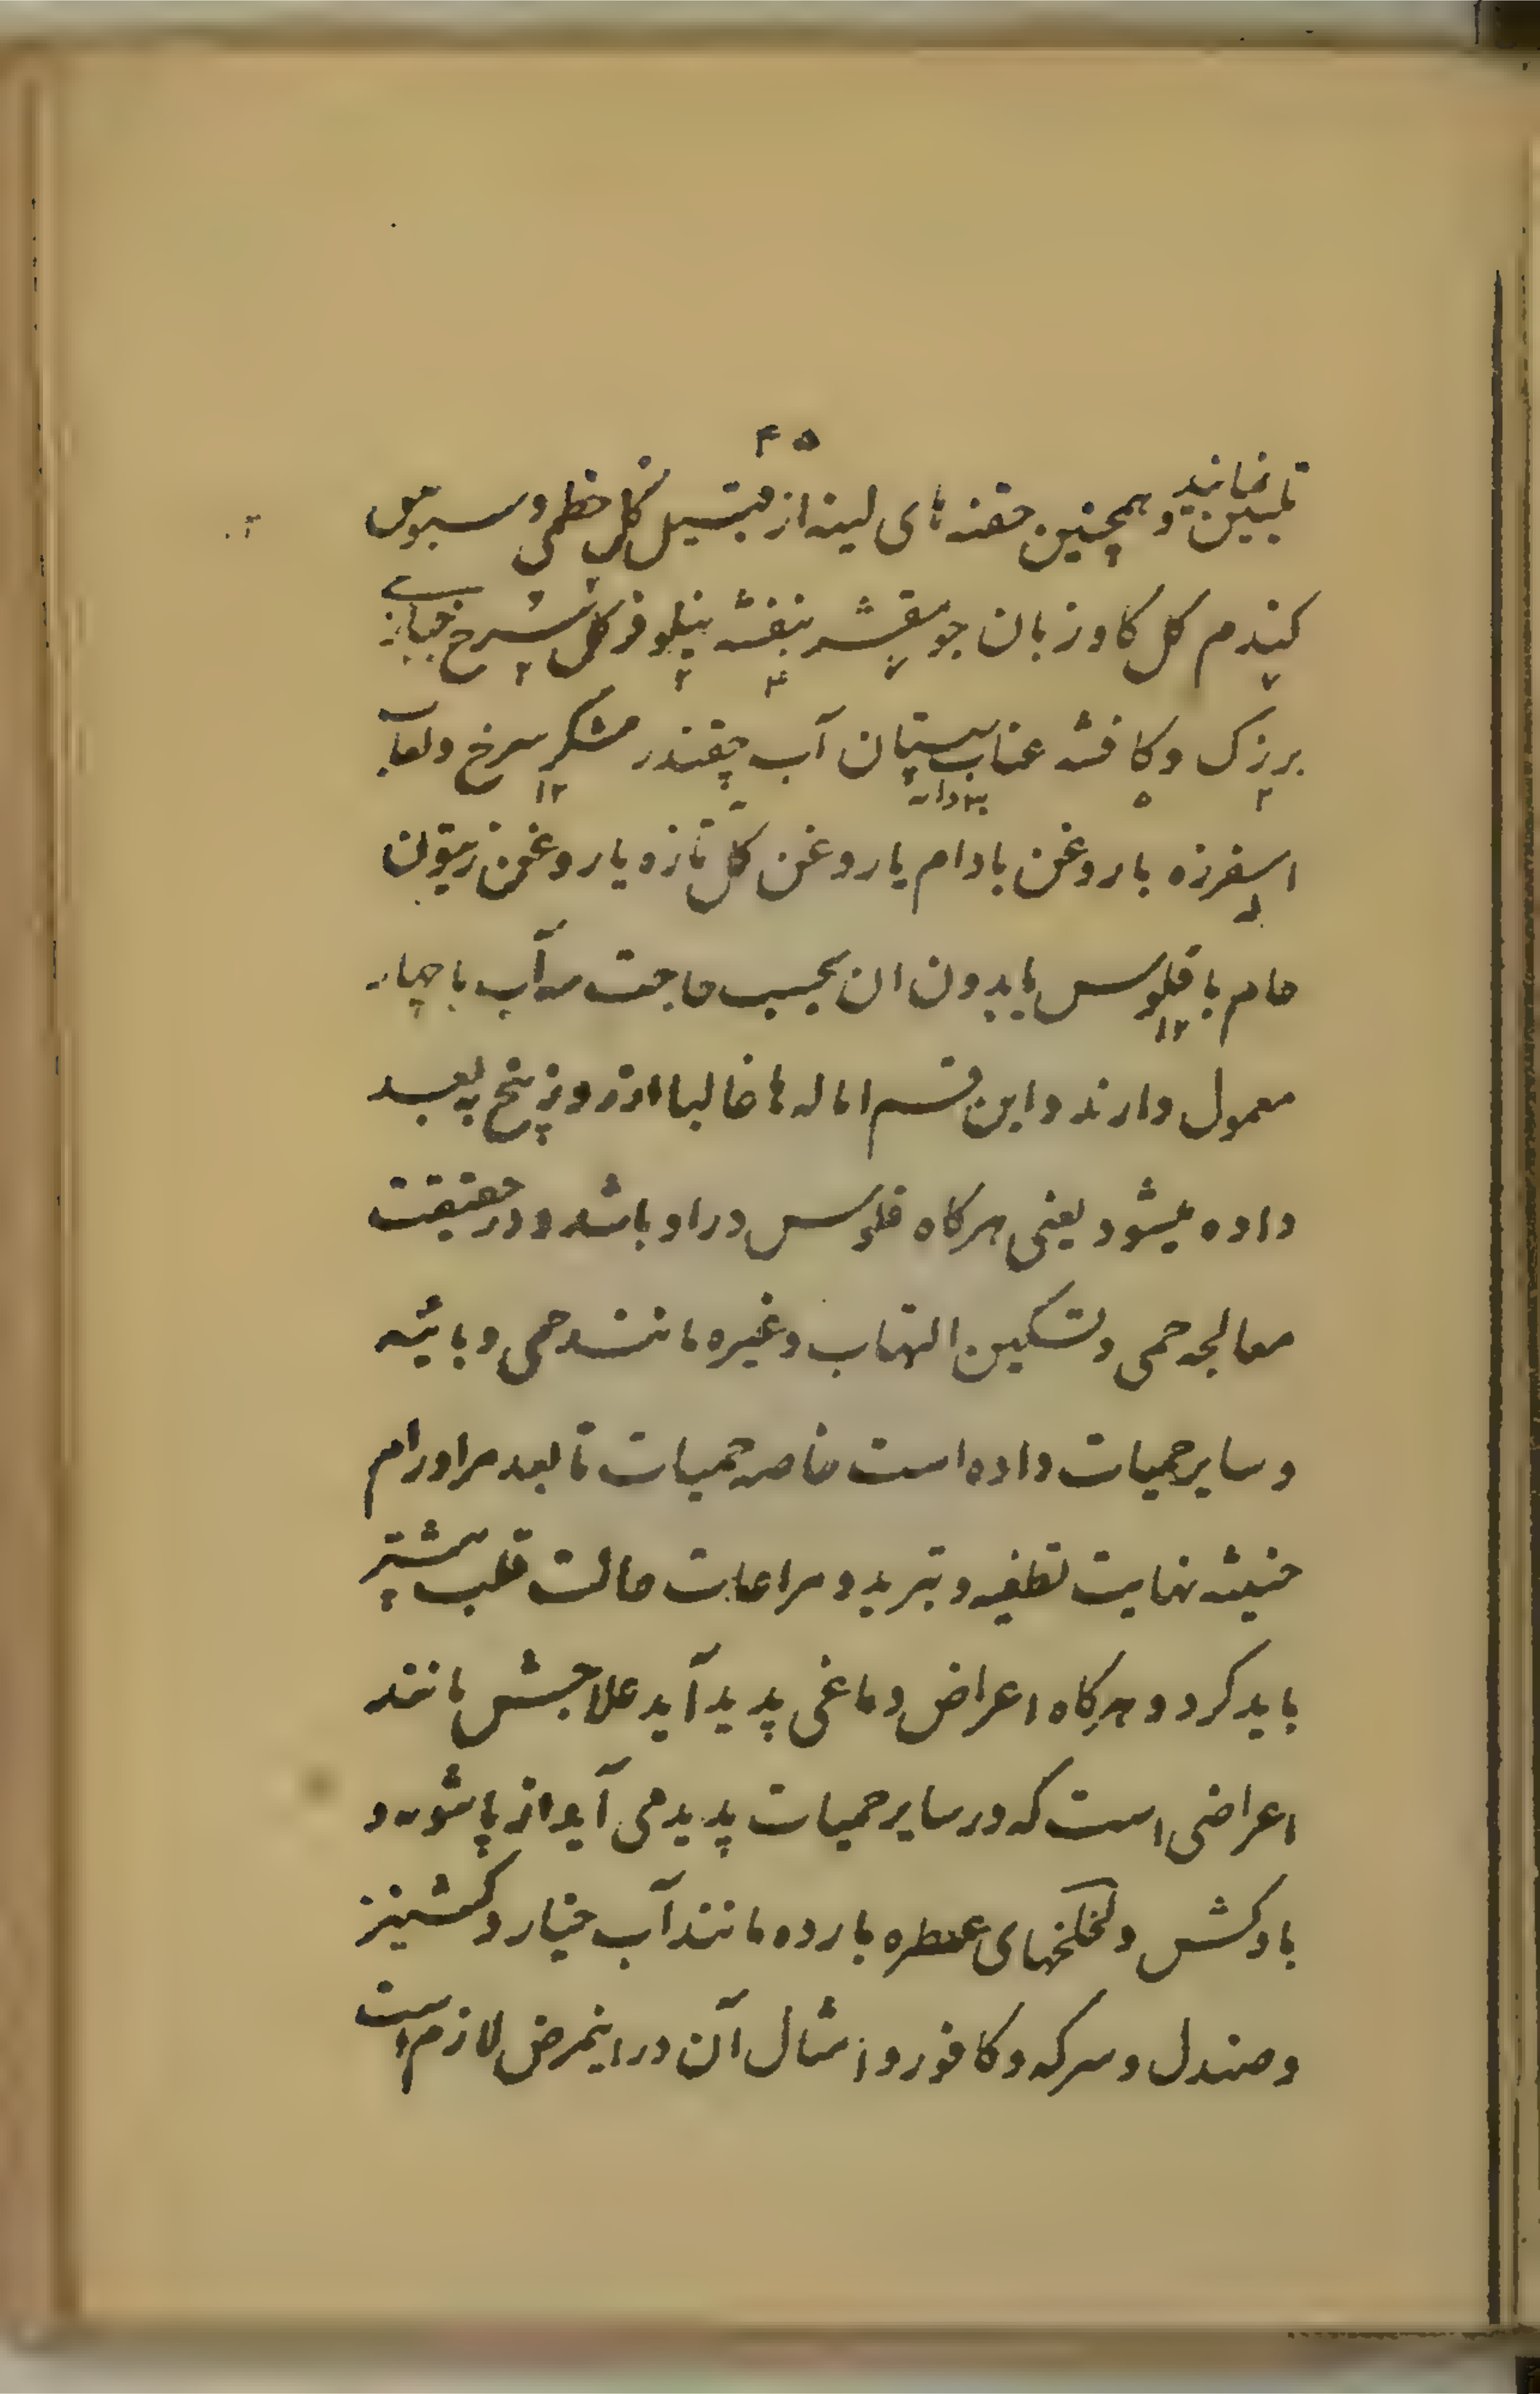 ۴۵
تلیین نمایند و همچنین حقنه های لینه از قبیل کل خطمی و سبوس
کندم کل کاوزبان جو مقشر بنفشه نیلوفر کل سرخ خبازی
۷ ۷ ۴ ۲ ۲
برزک و کافشه عناب سپستان آب چقندر شکر سرخ و لعاب
۲ ۵ دانه ۱۲
اسفرزه با روغن بادام یا روغن کل تازه یا روغن زیتون
خام با فلوس یا بدون ان بحسب حاجت سه آب یا چهار
۱۲
معمول دارند و این قسم اماله ها غالبا از روز پنج به بعد
داده میشود یعنی هرکاه فلوس در او باشد و در حقیقت
معالجه حمی و تسکین التهاب و غیره مانند حمی وبائیه
و سایر حمیات داده است خاصه حمیات تابعه مر اورام
خبیثه نهایت تطفیه و تبرید و مراعات حالت قلب بیشتر
باید کرد و هرکاه اعراض دماغی پدید آید علاجش مانند
اعراضی است که در سایر حمیات پدید می آید از پاشویه و
بادکش و لخلخهای عطره بارده مانند آب خیار و کشنیز
و صندل و سرکه و کافور و امثال آن در اینمرض لازم است